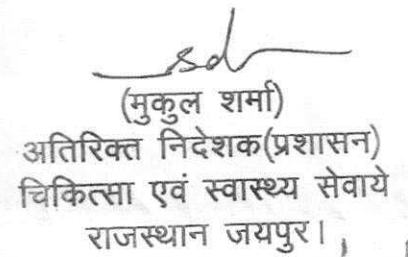 sd
(मुकुल शर्मा)
अतिरिक्त निदेशक(प्रशासन)
चिकित्सा एवं स्वास्थ्य सेवाये
राजस्थान जयपुर।